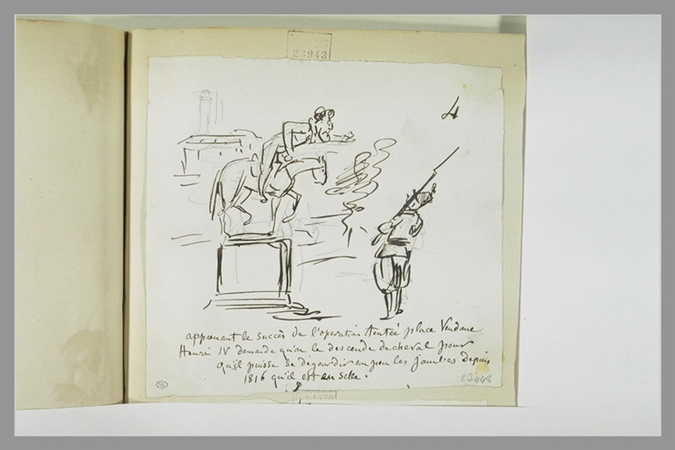 23943
4
apprenant le succès de l'operation tentée place Vendome
Henri IV demande qu'on le descende de cheval pour
qu'il puisse se degourdir un peu les jambes depuis
1816 qu'il est en selle.